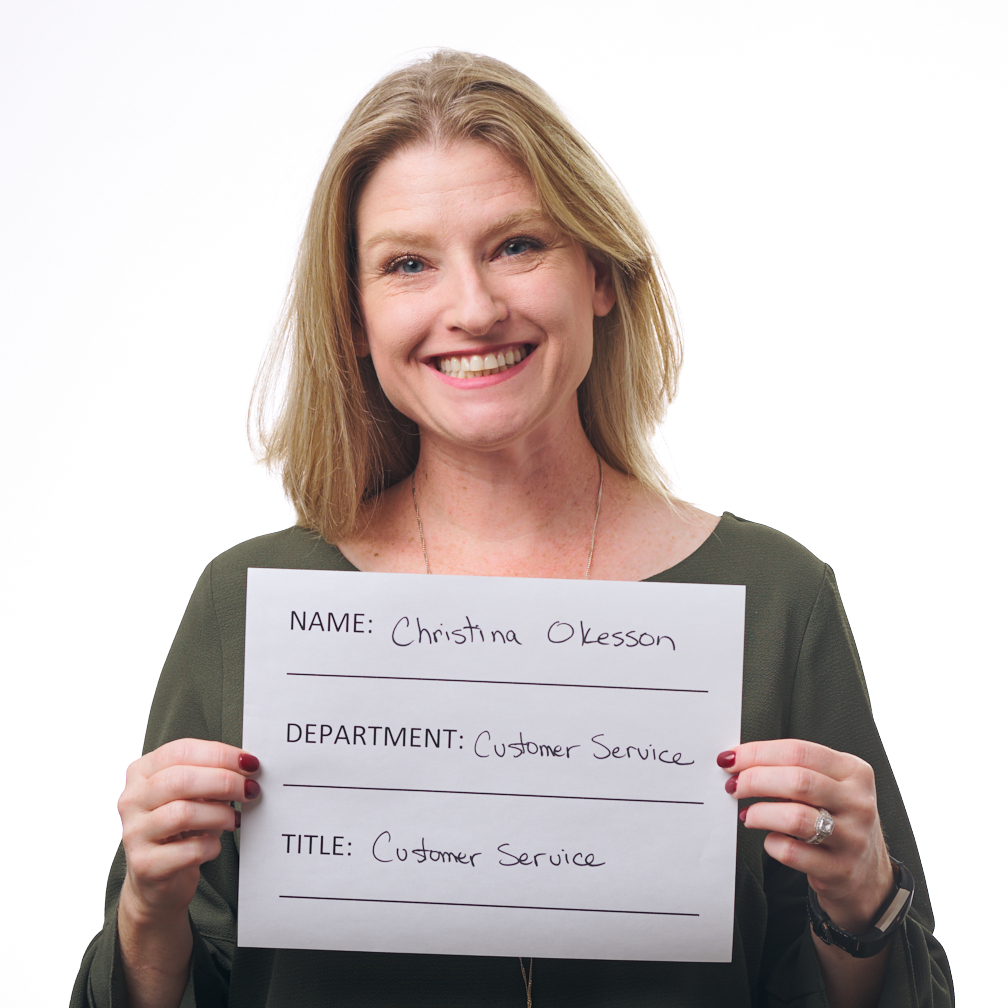 NAME: Christina Okesson
DEPARTMENT: Customer Service
TITLE: Customer Service